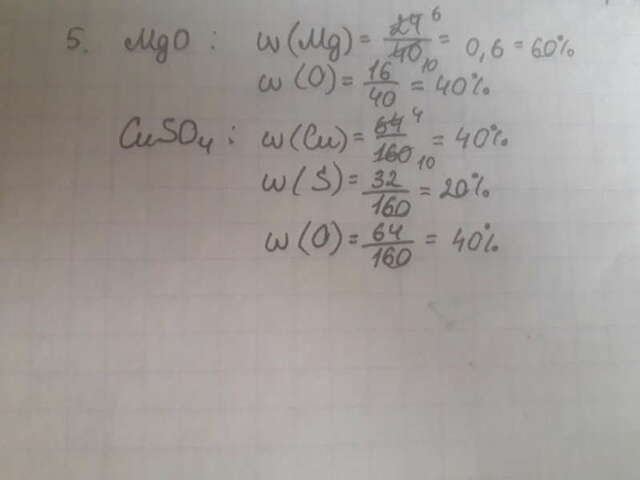 5. MgO : w(Mg) = 24 6 / 40 10 = 0,6 = 60%
w(O) = 16/40 = 40%
CuSO₄ : w(Cu) = 64 4 / 160 10 = 40%
w(S) = 32/160 = 20%
w(O) = 64/160 = 40%